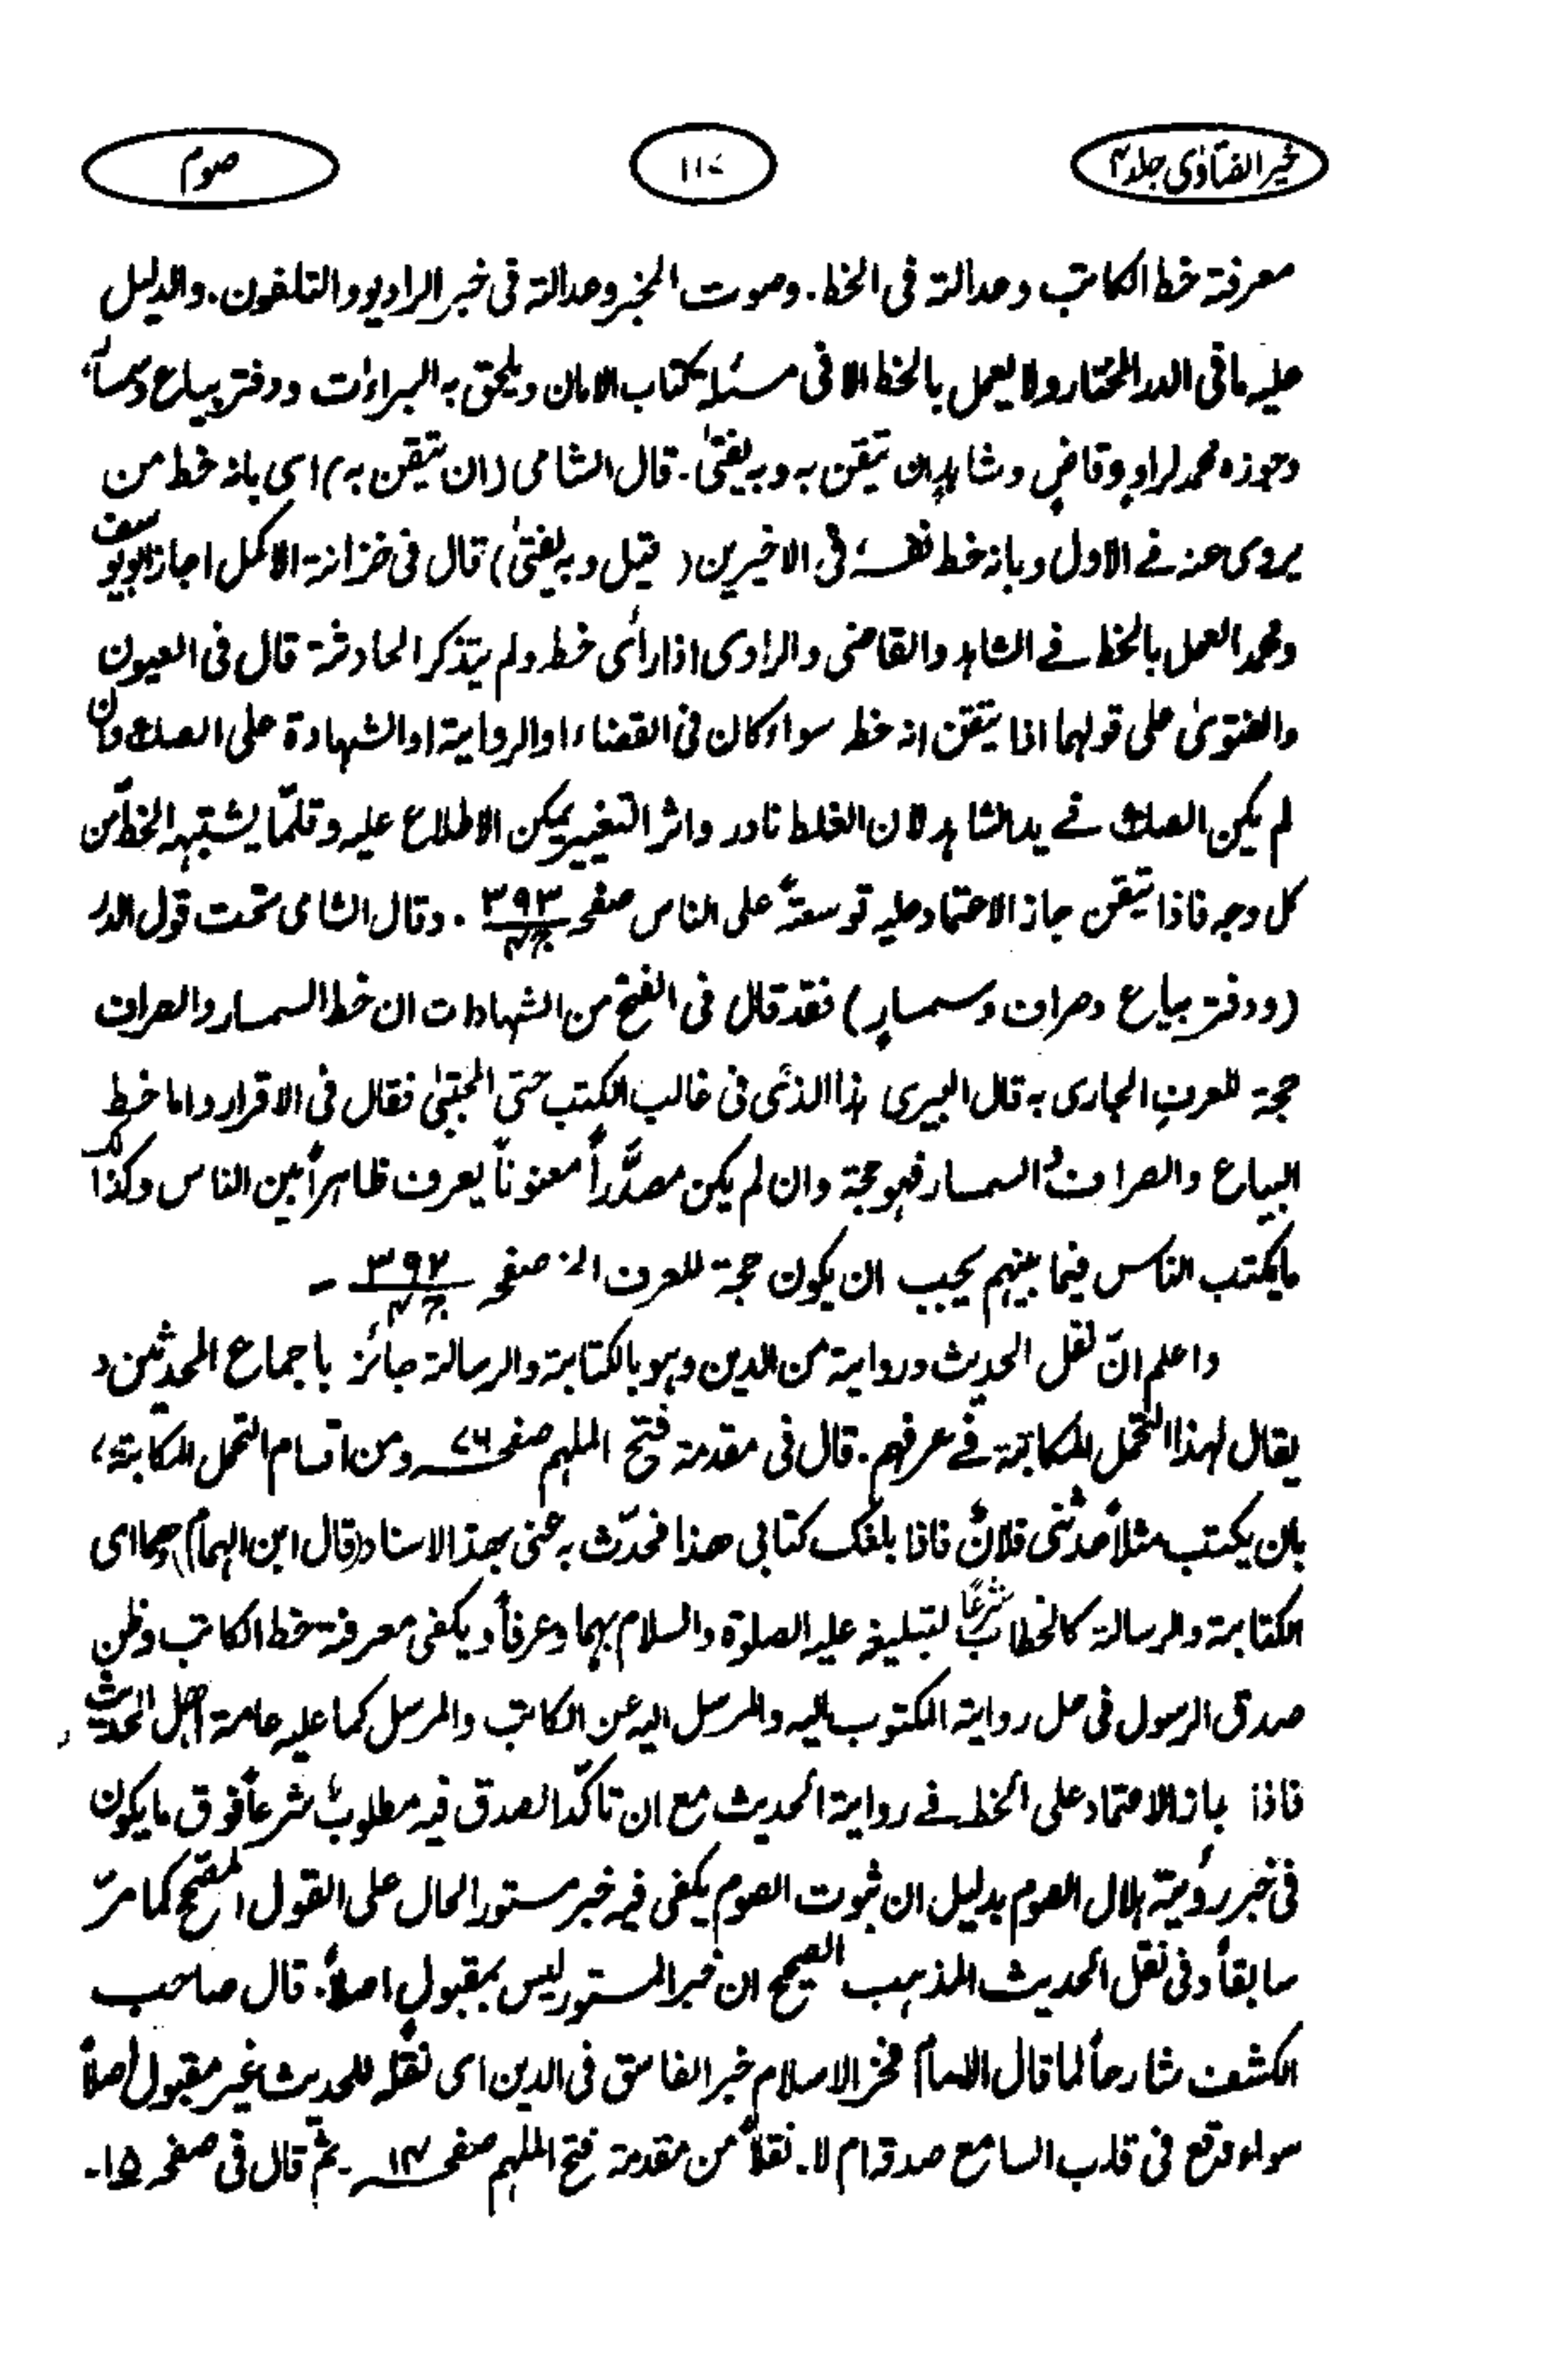 خیر الفتاوی جلد ۴
۱۱۷
صوم
معرفة خط الكاتب وعدالته فی الخط۔ وصوت المخبر وعدالته فی خبر الرادیو والتلفون۔ والدلیل
علیه ما فی الدر المختار ولا یعمل بالخط الا فی مسئلة کتاب الامان ویلحق به البراءات ودفتر بیاع وسمسار
وجوزه محمد لراوٍ وقاضٍ وشاهد ان تیقن به وبه یفتیٰ۔ قال الشامی (ان تیقن به) ای بانه خط من
یروی عنه فے الاول وبانه خط نفسه فی الاخیرین (قیل وبه یفتیٰ) قال فی خزانة الاکمل اجاز ابویوسف
ومحمد العمل بالخط فے الشاهد والقاضی والراوی اذا رأی خطه ولم یتذکر الحادثة قال فی العیون
والفتویٰ علی قولهما اذا تیقن انه خطه سواء کان فی القضاء او الروایة او الشهادة علی الصک وان
لم یکن الصک فے ید الشاهد لان الغلط نادر واثر التغییر یمکن الاطلاع علیه وقلّما یشتبه الخط من
کل وجه فاذا تیقن جاز الاعتماد علیه توسعةً علی الناس صفحه ۳۹۳ ج۴۔ وقال الشامی تحت قول الدر
(ودفتر بیاع وصراف وسمسارٍ) فقد قال فی الفتح من الشهادات ان خط السمسار والصراف
حجة للعرفِ الجاری به قال البیری هذا الذی فی غالب الکتب حتی المجتبیٰ فقال فی الاقرار واما خط
البیاع والصراف والسمسار فهو حجة وان لم یکن مصدَّراً معنوناً یعرف ظاهراً بین الناس وکذلک
ما یکتب الناس فیما بینهم یجب ان یکون حجة للعرف الخ صفحه ۳۹۲ ج۴۔
واعلم انّ نقل الحدیث وروایته من الدین وهو بالکتابة والرسالة جائز باجماع المحدثین و
یقال لهذا التحمل المکاتبة فے عرفهم۔ قال فی مقدمة فتح الملهم صفحه ۷۶ ومن اقسام التحمل المکاتبة،
بان یکتب مثلاً حدثنی فلانٌ فاذا بلغک کتابی هذا فحدّث به عنی بهذا الاسناد (قال ابن الهمام) وهما ای
الکتابة والرسالة کالخطاب شرعًا لتبلیغه علیه الصلوة والسلام بهما وعرفاً ویکفی معرفة خط الکاتب وظن
صدق الرسول فی حل روایة المکتوب الیه والمرسل الیه عن الکاتب والمرسل کما علیه عامة اهل الحدیث،
فاذا جاز الاعتماد علی الخط فے روایة الحدیث مع ان تاکّد الصدق فیه مطلوبٌ شرعاً فوق ما یکون
فی خبر رؤیة هلال الصوم بدلیل ان ثبوت الصوم یکفی فیه خبر مستور الحال علی القول المصحح کما مرّ
سابقاً وفی نقل الحدیث المذهب الصحیح ان خبر المستور لیس بمقبول اصلاً۔ قال صاحب
الکشف شارحاً لما قال الامام فخر الاسلام خبر الفاسق فی الدین ای نقله للحدیث غیر مقبول اصلاً
سواء وقع فی قلب السامع صدقه ام لا۔ نقلاً من مقدمة فتح الملهم صفحه ۱۴۔ ثم قال فی صفحه ۱۵۔